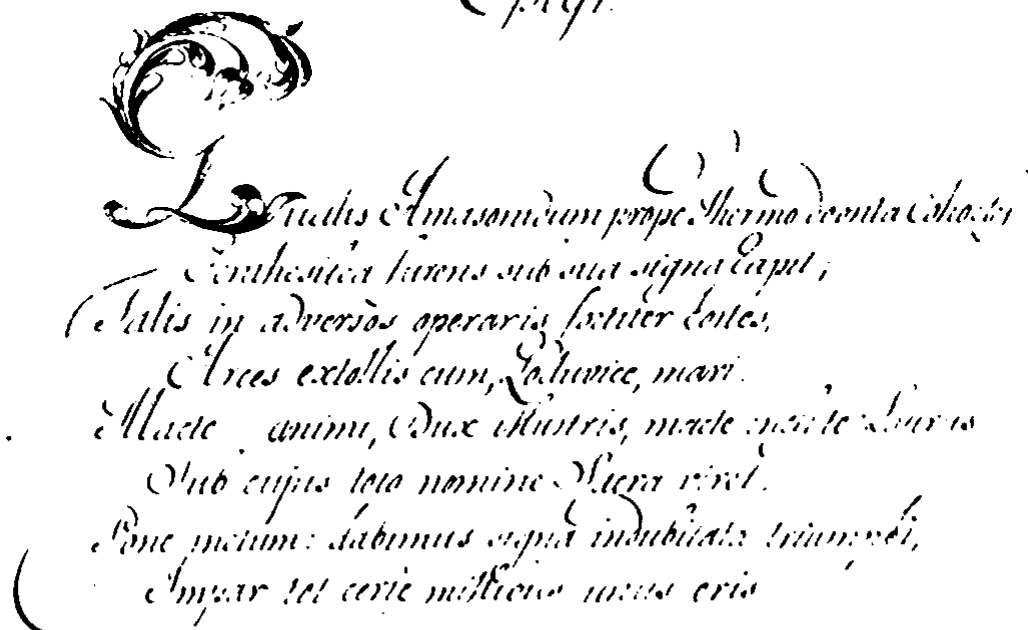 Epigr.
Qualis Amasonidum prope Thermodoonta Cohortes
Penthesiléa furens sub sua signa Capit;
Talis in adversos operaris fortiter hostes,
Arces extollis cum, Lodovice, mari.
Macte animi, Dux illustris, macte
Sub cujus toto nomine viret.
Pone metum: dabimus signa indubitata triumphi,
Impar tot certè millibus unus eris